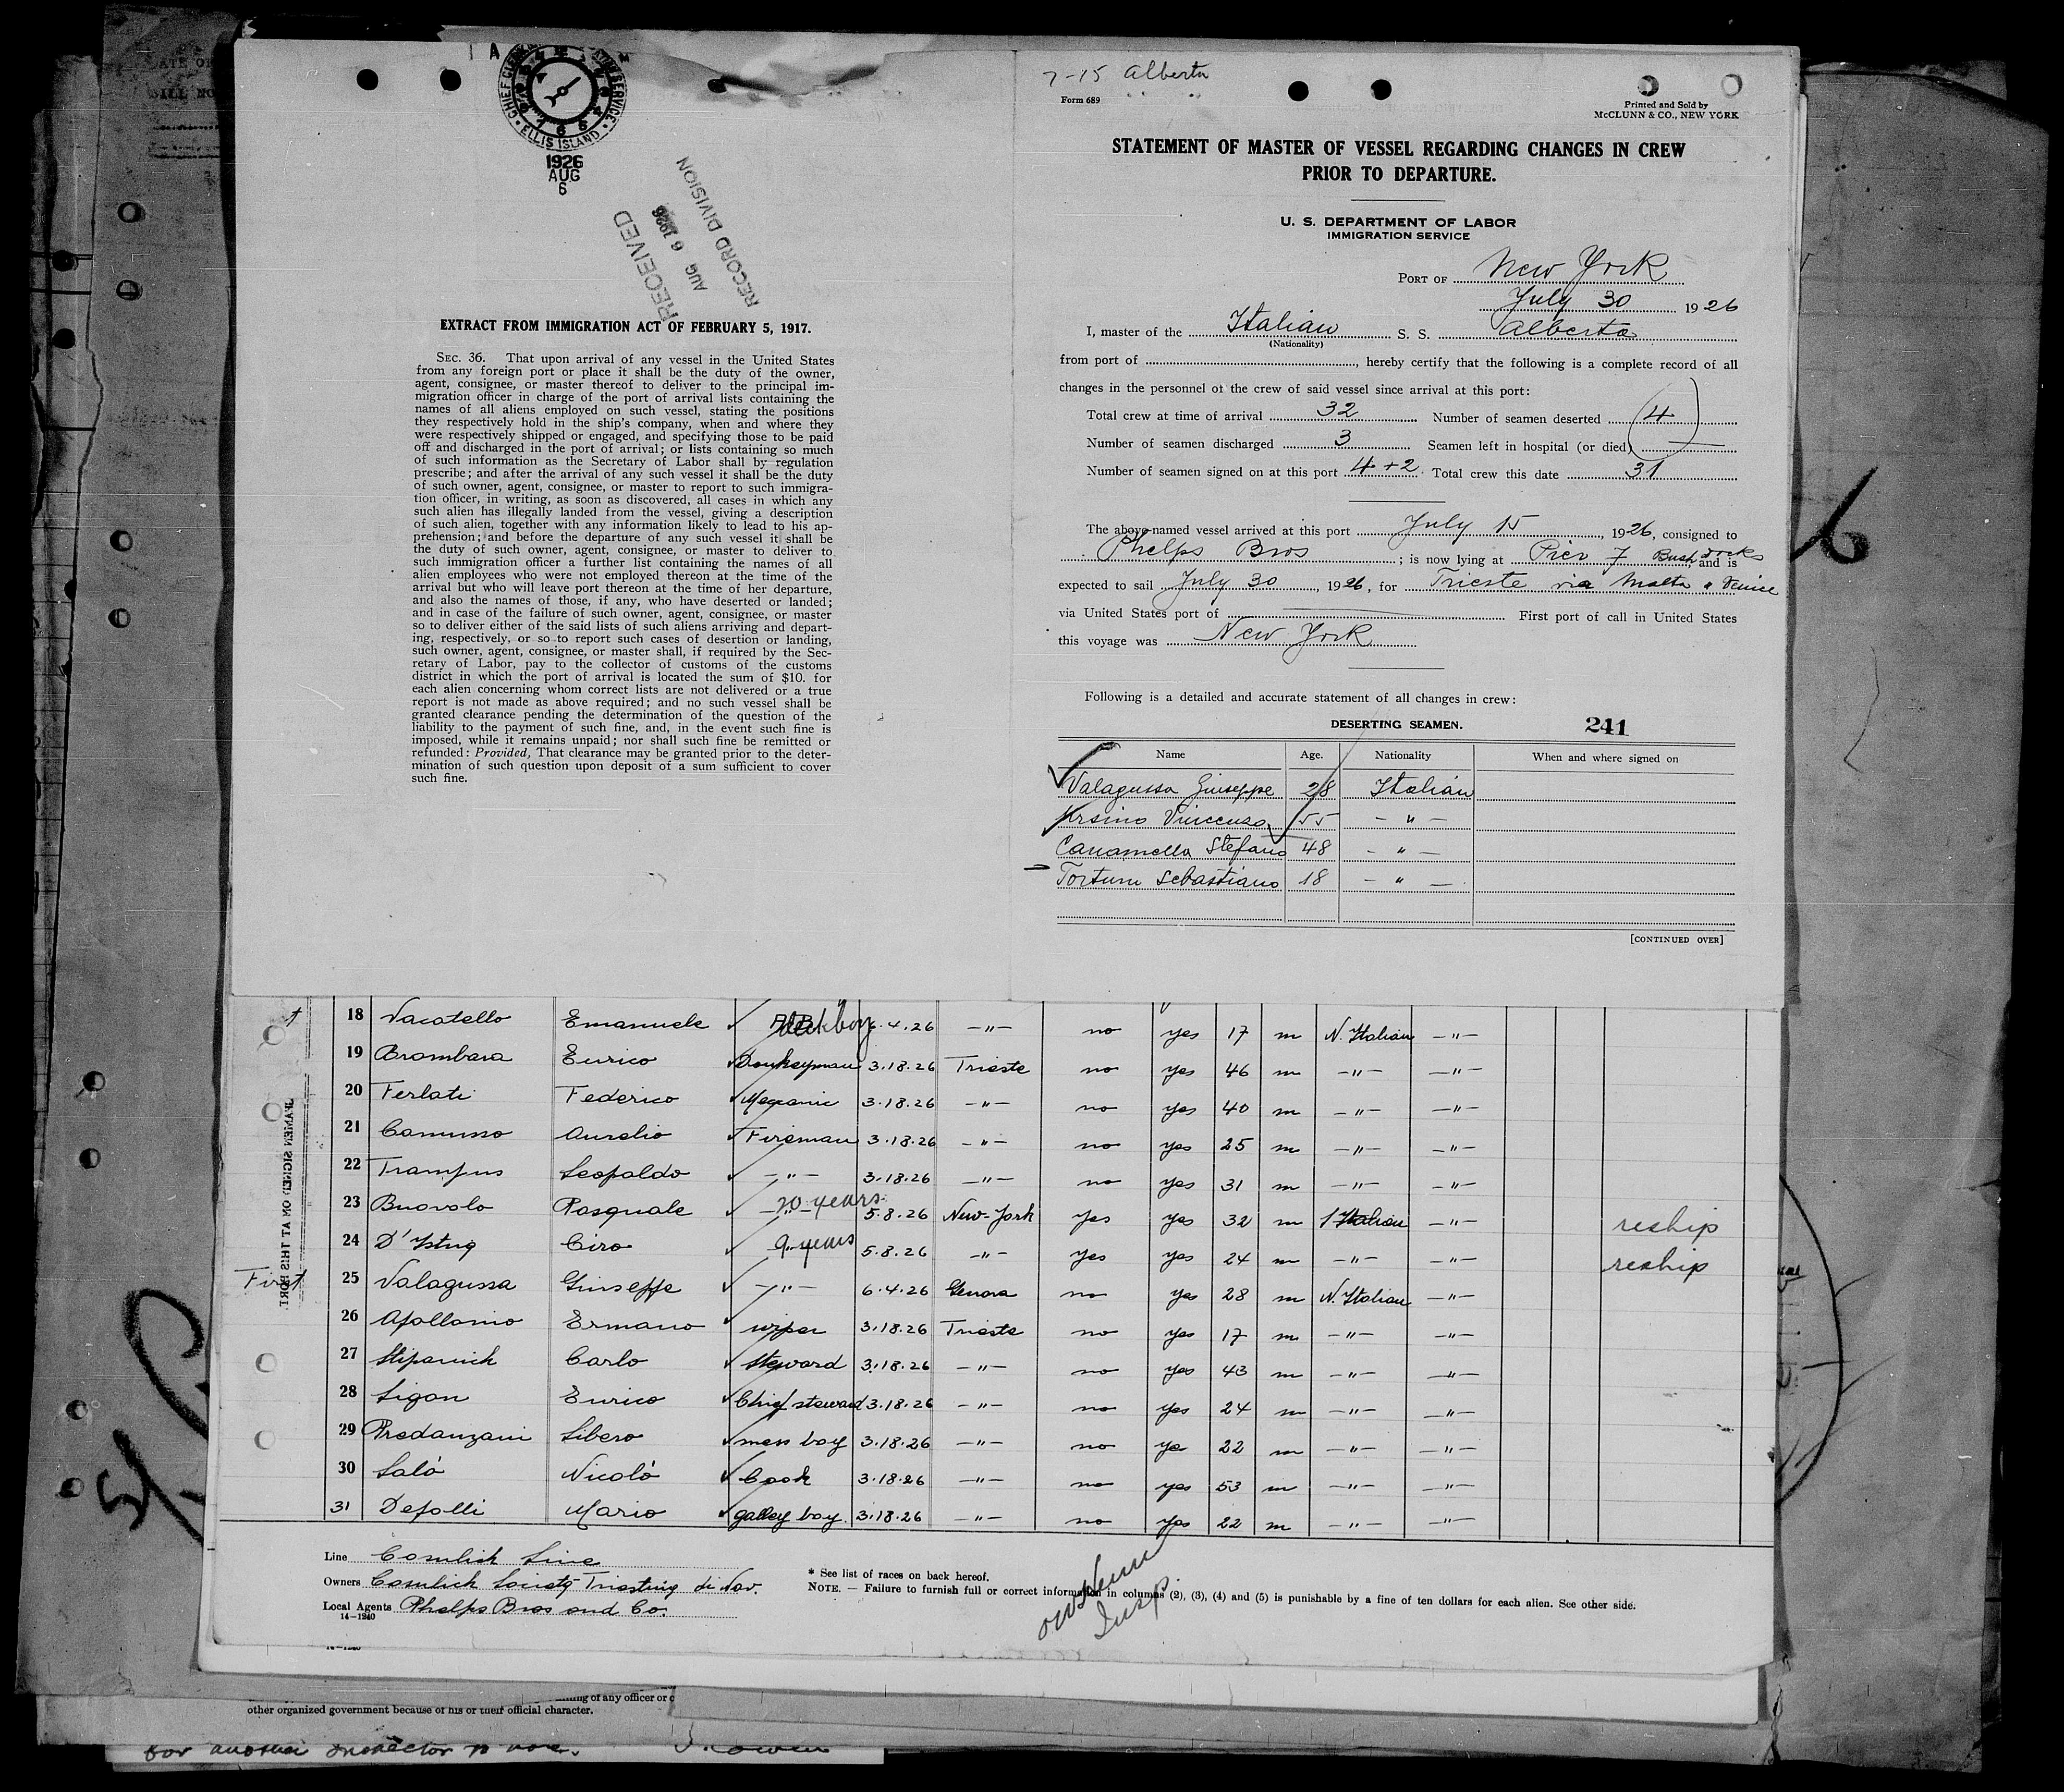 CHIEF CLERK
ELLIS ISLAND
1926
AUG
6
RECEIVED
AUG 6 1926
RECORD DIVISION
EXTRACT FROM IMMIGRATION ACT OF FEBRUARY 5, 1917.
SEC. 36. That upon arrival of any vessel in the United States
from any foreign port or place it shall be the duty of the owner,
agent, consignee, or master thereof to deliver to the principal im-
migration officer in charge of the port of arrival lists containing the
names of all aliens employed on such vessel, stating the positions
they respectively hold in the ship's company, when and where they
were respectively shipped or engaged, and specifying those to be paid
off and discharged in the port of arrival; or lists containing so much
of such information as the Secretary of Labor shall by regulation
prescribe; and after the arrival of any such vessel it shall be the duty
of such owner, agent, consignee, or master to report to such immigra-
tion officer, in writing, as soon as discovered, all cases in which any
such alien has illegally landed from the vessel, giving a description
of such alien, together with any information likely to lead to his ap-
prehension; and before the departure of any such vessel it shall be
the duty of such owner, agent, consignee, or master to deliver to
such immigration officer a further list containing the names of all
alien employees who were not employed thereon at the time of the
arrival but who will leave port thereon at the time of her departure,
and also the names of those, if any, who have deserted or landed;
and in case of the failure of such owner, agent, consignee, or master
so to deliver either of the said lists of such aliens arriving and depart-
ing, respectively, or so to report such cases of desertion or landing,
such owner, agent, consignee, or master shall, if required by the Sec-
retary of Labor, pay to the collector of customs of the customs
district in which the port of arrival is located the sum of $10. for
each alien concerning whom correct lists are not delivered or a true
report is not made as above required; and no such vessel shall be
granted clearance pending the determination of the question of the
liability to the payment of such fine, and, in the event such fine is
imposed, while it remains unpaid; nor shall such fine be remitted or
refunded: Provided, That clearance may be granted prior to the deter-
mination of such question upon deposit of a sum sufficient to cover
such fine.
7-15 Alberta
Form 689
Printed and Sold by
McCLUNN & CO., NEW YORK
STATEMENT OF MASTER OF VESSEL REGARDING CHANGES IN CREW
PRIOR TO DEPARTURE.
U. S. DEPARTMENT OF LABOR
IMMIGRATION SERVICE
PORT OF New York
July 30 1926
I, master of the Italian S. S. Alberta
(Nationality)
from port of , hereby certify that the following is a complete record of all
changes in the personnel of the crew of said vessel since arrival at this port:
Total crew at time of arrival 32 Number of seamen deserted 4
Number of seamen discharged 3 Seamen left in hospital (or died)
Number of seamen signed on at this port 4+2 Total crew this date 31
The above-named vessel arrived at this port July 15, 1926, consigned to
Phelps Bros ; is now lying at Pier 7 Bush docks and is
expected to sail July 30, 1926, for Trieste via Malta " Venice
via United States port of First port of call in United States
this voyage was New York
Following is a detailed and accurate statement of all changes in crew:
DESERTING SEAMEN. 241
Name Age. Nationality When and where signed on
Valagussa Giuseppe 28 Italian
Ursino Vincenzo 55 - " -
Canamella Stefano 48 - " -
Tortum Sebastiano 18 - " -
[CONTINUED OVER]
18 Vacatello Emanuele deckboy 6.4.26 -"- no yes 17 m N. Italian -"-
19 Brombara Enrico Donkeyman 3.18.26 Trieste no yes 46 m -"- -"-
20 Ferlati Federico Mecanic 3.18.26 -"- no yes 40 m -"- -"-
21 Camusso Aurelio Fireman 3.18.26 -"- no yes 25 m -"- -"-
22 Trampus Leopoldo -"- 3.18.26 -"- no yes 31 m -"- -"-
23 Buovolo Pasquale -"- 20 years 5.8.26 New-York yes yes 32 m Italian -"- reship
24 Ciro 9 years 5.8.26 -"- yes yes 24 m -"- -"- reship
First 25 Valagussa Giuseppe -"- 6.4.26 Genova no yes 28 m N. Italian -"-
26 Apollonio Ermano wiper 3.18.26 Trieste no yes 17 m -"- -"-
27 Stipanich Carlo steward 3.18.26 -"- no yes 43 m -"- -"-
28 Ligon Enrico Chief steward 3.18.26 -"- no yes 24 m -"- -"-
29 Predanzani Libero mess boy 3.18.26 -"- no ye 22 m -"- -"-
30 Salò Nicolò Cook 3.18.26 -"- no yes 53 m -"- -"-
31 Depolli Mario galley boy 3.18.26 -"- no yes 22 m -"- -"-
Line Cosulich Line
Owners Cosulich Societa Triestina di Nav.
Local Agents Phelps Bros and Co.
14-1240
* See list of races on back hereof.
NOTE. — Failure to furnish full or correct information in columns (2), (3), (4) and (5) is punishable by a fine of ten dollars for each alien. See other side.
Insp.
other organized government because of his or their official character.
for another inspector to note.